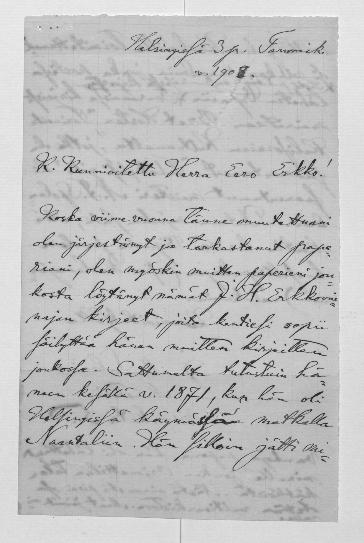 Helsingissä 3 p. Tammik.
v. 1908.
K. Kunnioitettu Herra Eero Erkko!
Koska viime vuonna tänne muutettuani
olen järjestänyt ja tarkastanut pape-
riani, olen myöskin muitten papereini jou-
kosta löytänyt nämät J. H. Erkko vai-
najan kirjeet, joita kentiesi sopii
säilyttää hänen muitten kirjeitten
joukossa. Sattumalta tutustuin hä-
neen kesällä v. 1871, kun hän oli
Helsingissä käymässä matkalla
Naantaliin. Hän silloin jätti mi-